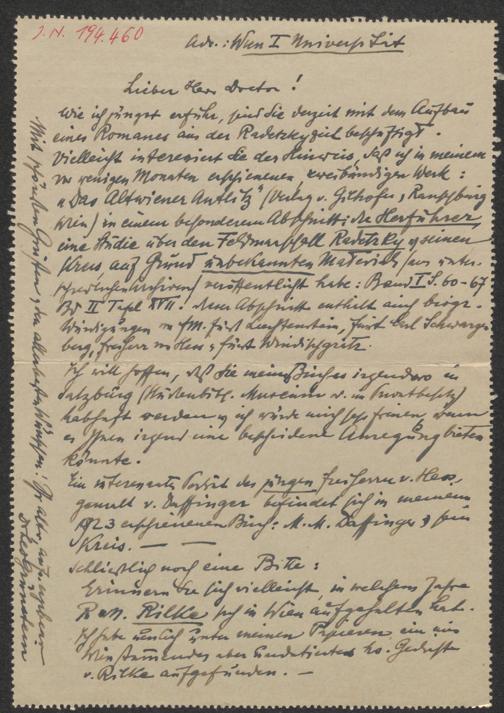 I.N. 194.460
Adr.: Wien I Universität
Lieber Herr Doctor!
Wie ich jüngst erfuhr, sind Sie derzeit mit dem Aufbau
eines Romanes aus der Radetzkyzeit beschäftigt.
Vielleicht interessiert Sie der Hinweis, daß ich in meinem
vor wenigen Monaten erschienenen zweibändigen Werk:
"Das Altwiener Antlitz" (Verlag v. Gilhofer & Ranschburg
Wien) in einem besonderen Abschnitt: die Heerführer,
eine Studie über den Feldmarschall Radetzky & seinen
Kreis, auf Grund unbekannten Materials (aus
) veröffentlicht habe: Band I S. 60-67
Bd II Tafel XVII. Dem Abschnitt enthält auch biogr.
Würdigungen v. FM. Fürst Liechtenstein, Fürst Carl Schwarzen
berg, Freiherr von Hess & Fürst Windischgrätz.
Ich will hoffen, daß Sie meines Buches irgendwo in
Salzburg (Studienbibl. Museum o. im Privatbesitz)
habhaft werden & ich würde mich sehr freuen, wenn
es Ihnen irgend eine bescheidene Anregung bieten
könnte.
Ein interessantes Porträt des jungen Freiherrn v. Hess,
gemalt v. Daffinger befindet sich in meinem
1923 erschienenen Buch: M. M. Daffinger & sein
Kreis. —
Schließlich noch eine Bitte:
Erinnern Sie sich vielleicht, in welchem Jahre
Rilke sich in Wien aufgehalten hat.
Ich habe neulich unter meinen Papieren ein aus
Wien stammendes aber undatiertes hs. Gedicht
v. Rilke aufgefunden. —
Mit schönsten Grüßen & den allerbesten Wünschen! Ihr alter, aufr. ergebener
Dr Leo Grünstein